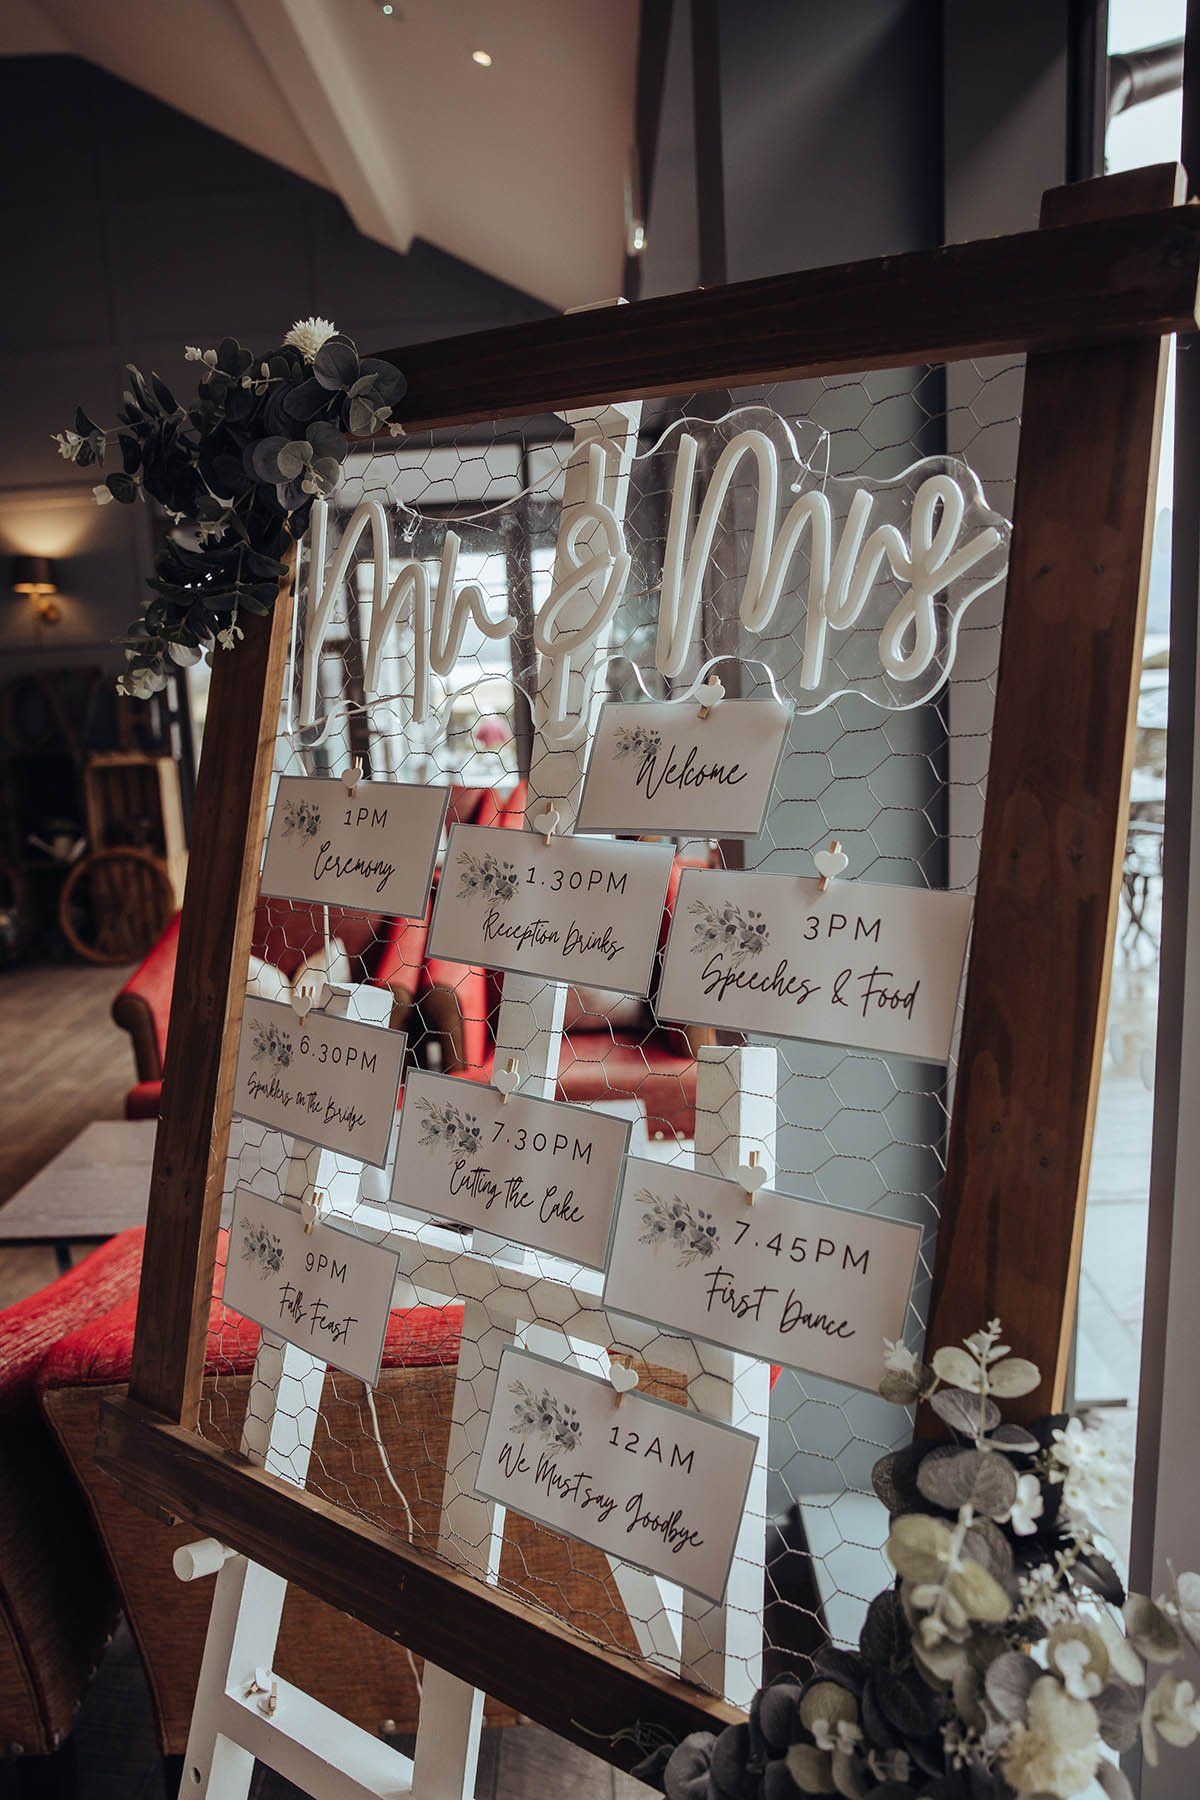 Mr & Mrs
Welcome
1PM
Ceremony
1.30PM
Reception Drinks
3PM
Speeches & Food
6.30PM
Sparklers on the Bridge
7.30PM
Cutting the Cake
7.45PM
First Dance
9PM
Falls Feast
12AM
We Must say Goodbye